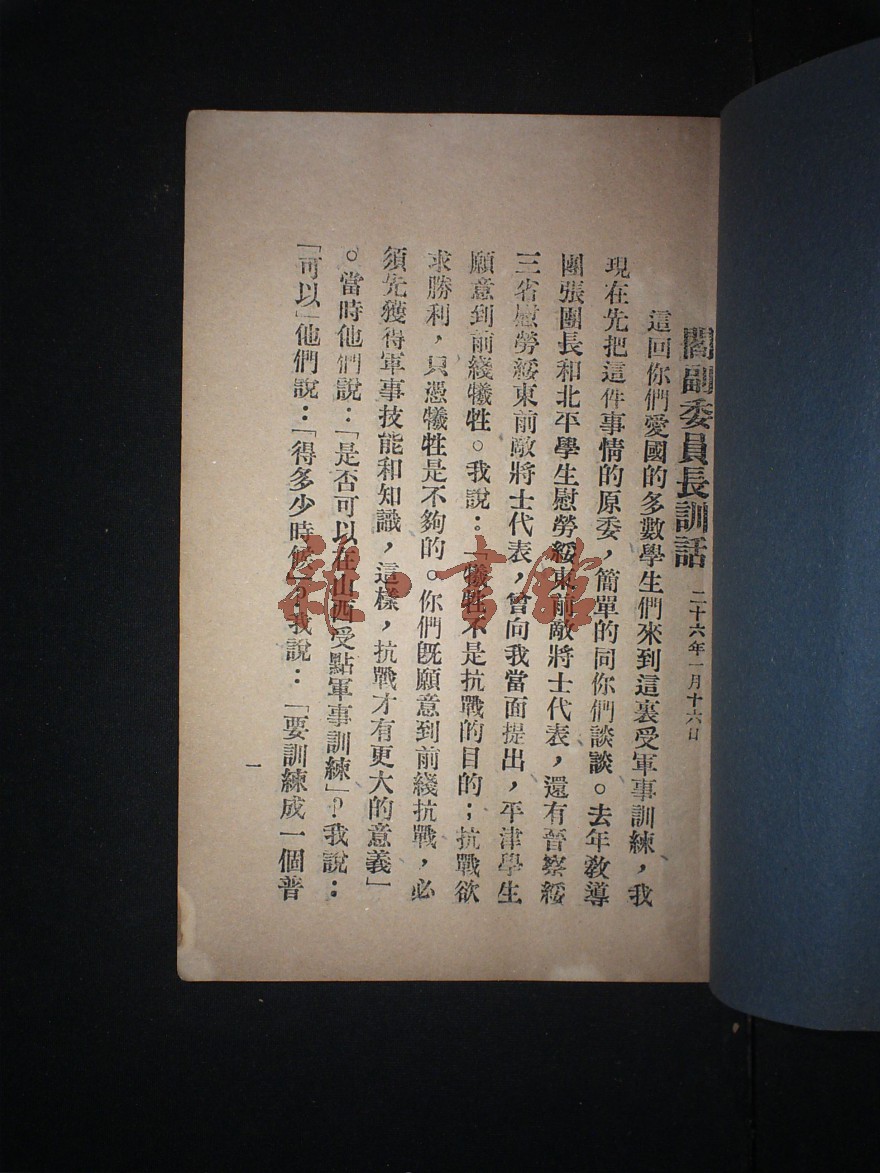 閻副委員長訓話 二十六年一月十六日
這回你們愛國的多數學生們來到這裏受軍事訓練，我
現在先把這件事情的原委，簡單的同你們談談。去年敎導
團張團長和北平學生慰勞綏東前敵將士代表，還有晉察綏
三省慰勞綏東前敵將士代表，曾向我當面提出，平津學生
願意到前綫犧牲。我說：「犧牲不是抗戰的目的；抗戰欲
求勝利，只憑犧牲是不夠的。你們旣願意到前綫抗戰，必
須先獲得軍事技能和知識，這樣，抗戰才有更大的意義」
。當時他們說：「是否可以在山西受點軍事訓練」？我說：
「可以」他們說：「得多少時候」？我說：「要訓練成一個普
一
雜·書館